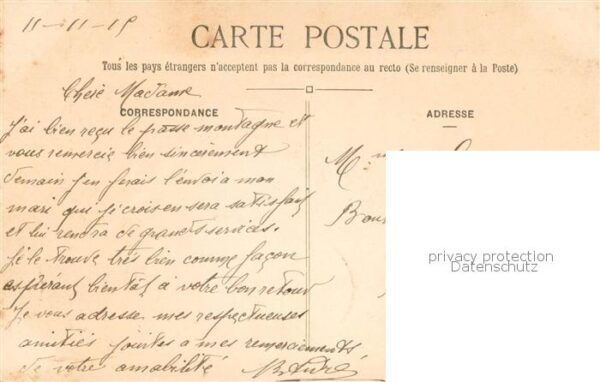 11-11-15
CARTE POSTALE
Tous les pays étrangers n'acceptent pas la correspondance au recto (Se renseigner à la Poste)
Chere Madame
CORRESPONDANCE
ADRESSE
J'ai bien reçu le passe montagne et
vous remercie bien sincèrement
demain j'en ferais l'envoi a mon
mari qui je crois en sera satisfait
et lui rendra de grands services.
Je le trouve très bien comme façon
espérant bientôt à votre bon retour
Je vous adresse mes respectueuses
amitiés jointes a mes remerciements
de votre amabilité
M
Bou
privacy protection
Datenschutz